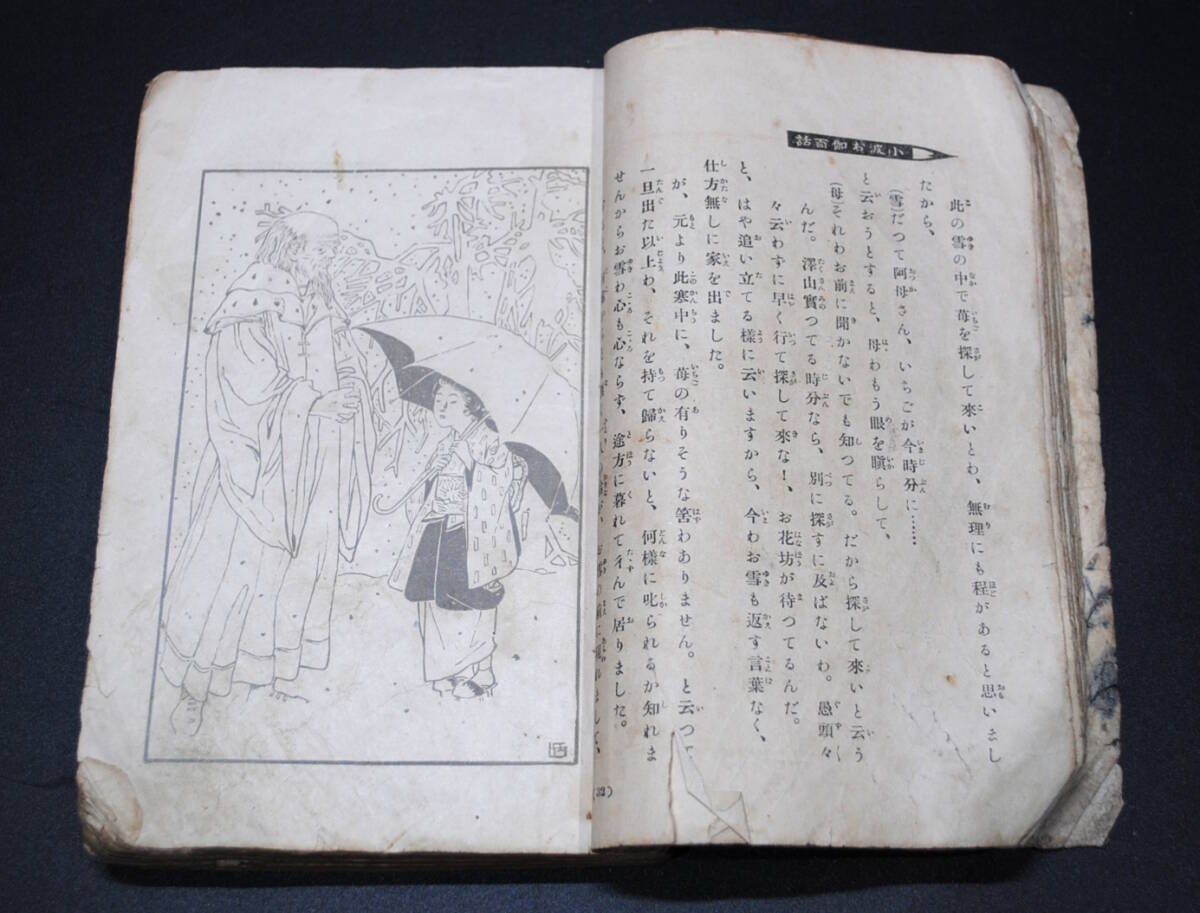 小波お伽百話
此の雪の中で苺を探して來いとわ、無理にも程があると思いまし
たから、
(雪だつて阿母さん、いちごが今時分に……
と云おうとすると、母わもう眼を瞋らして、
(母それわお前に聞かないでも知つてる。だから探して來いと云う
んだ。澤山實つてる時分なら、別に探すに及ばないわ。愚頭々
々云わずに早く行て探して來な!、お花坊が待つてるんだ。
と、はや追い立てる樣に云いますから、今わお雪も返す言葉なく、
仕方無しに家を出ました。
が、元より此寒中に、苺の有りそうな筈わありません。と云つて
一旦出た以上わ、それを持て歸らないと、何樣に叱られるか知れま
せんからお雪わ心も心ならず、途方に暮れて居りました。